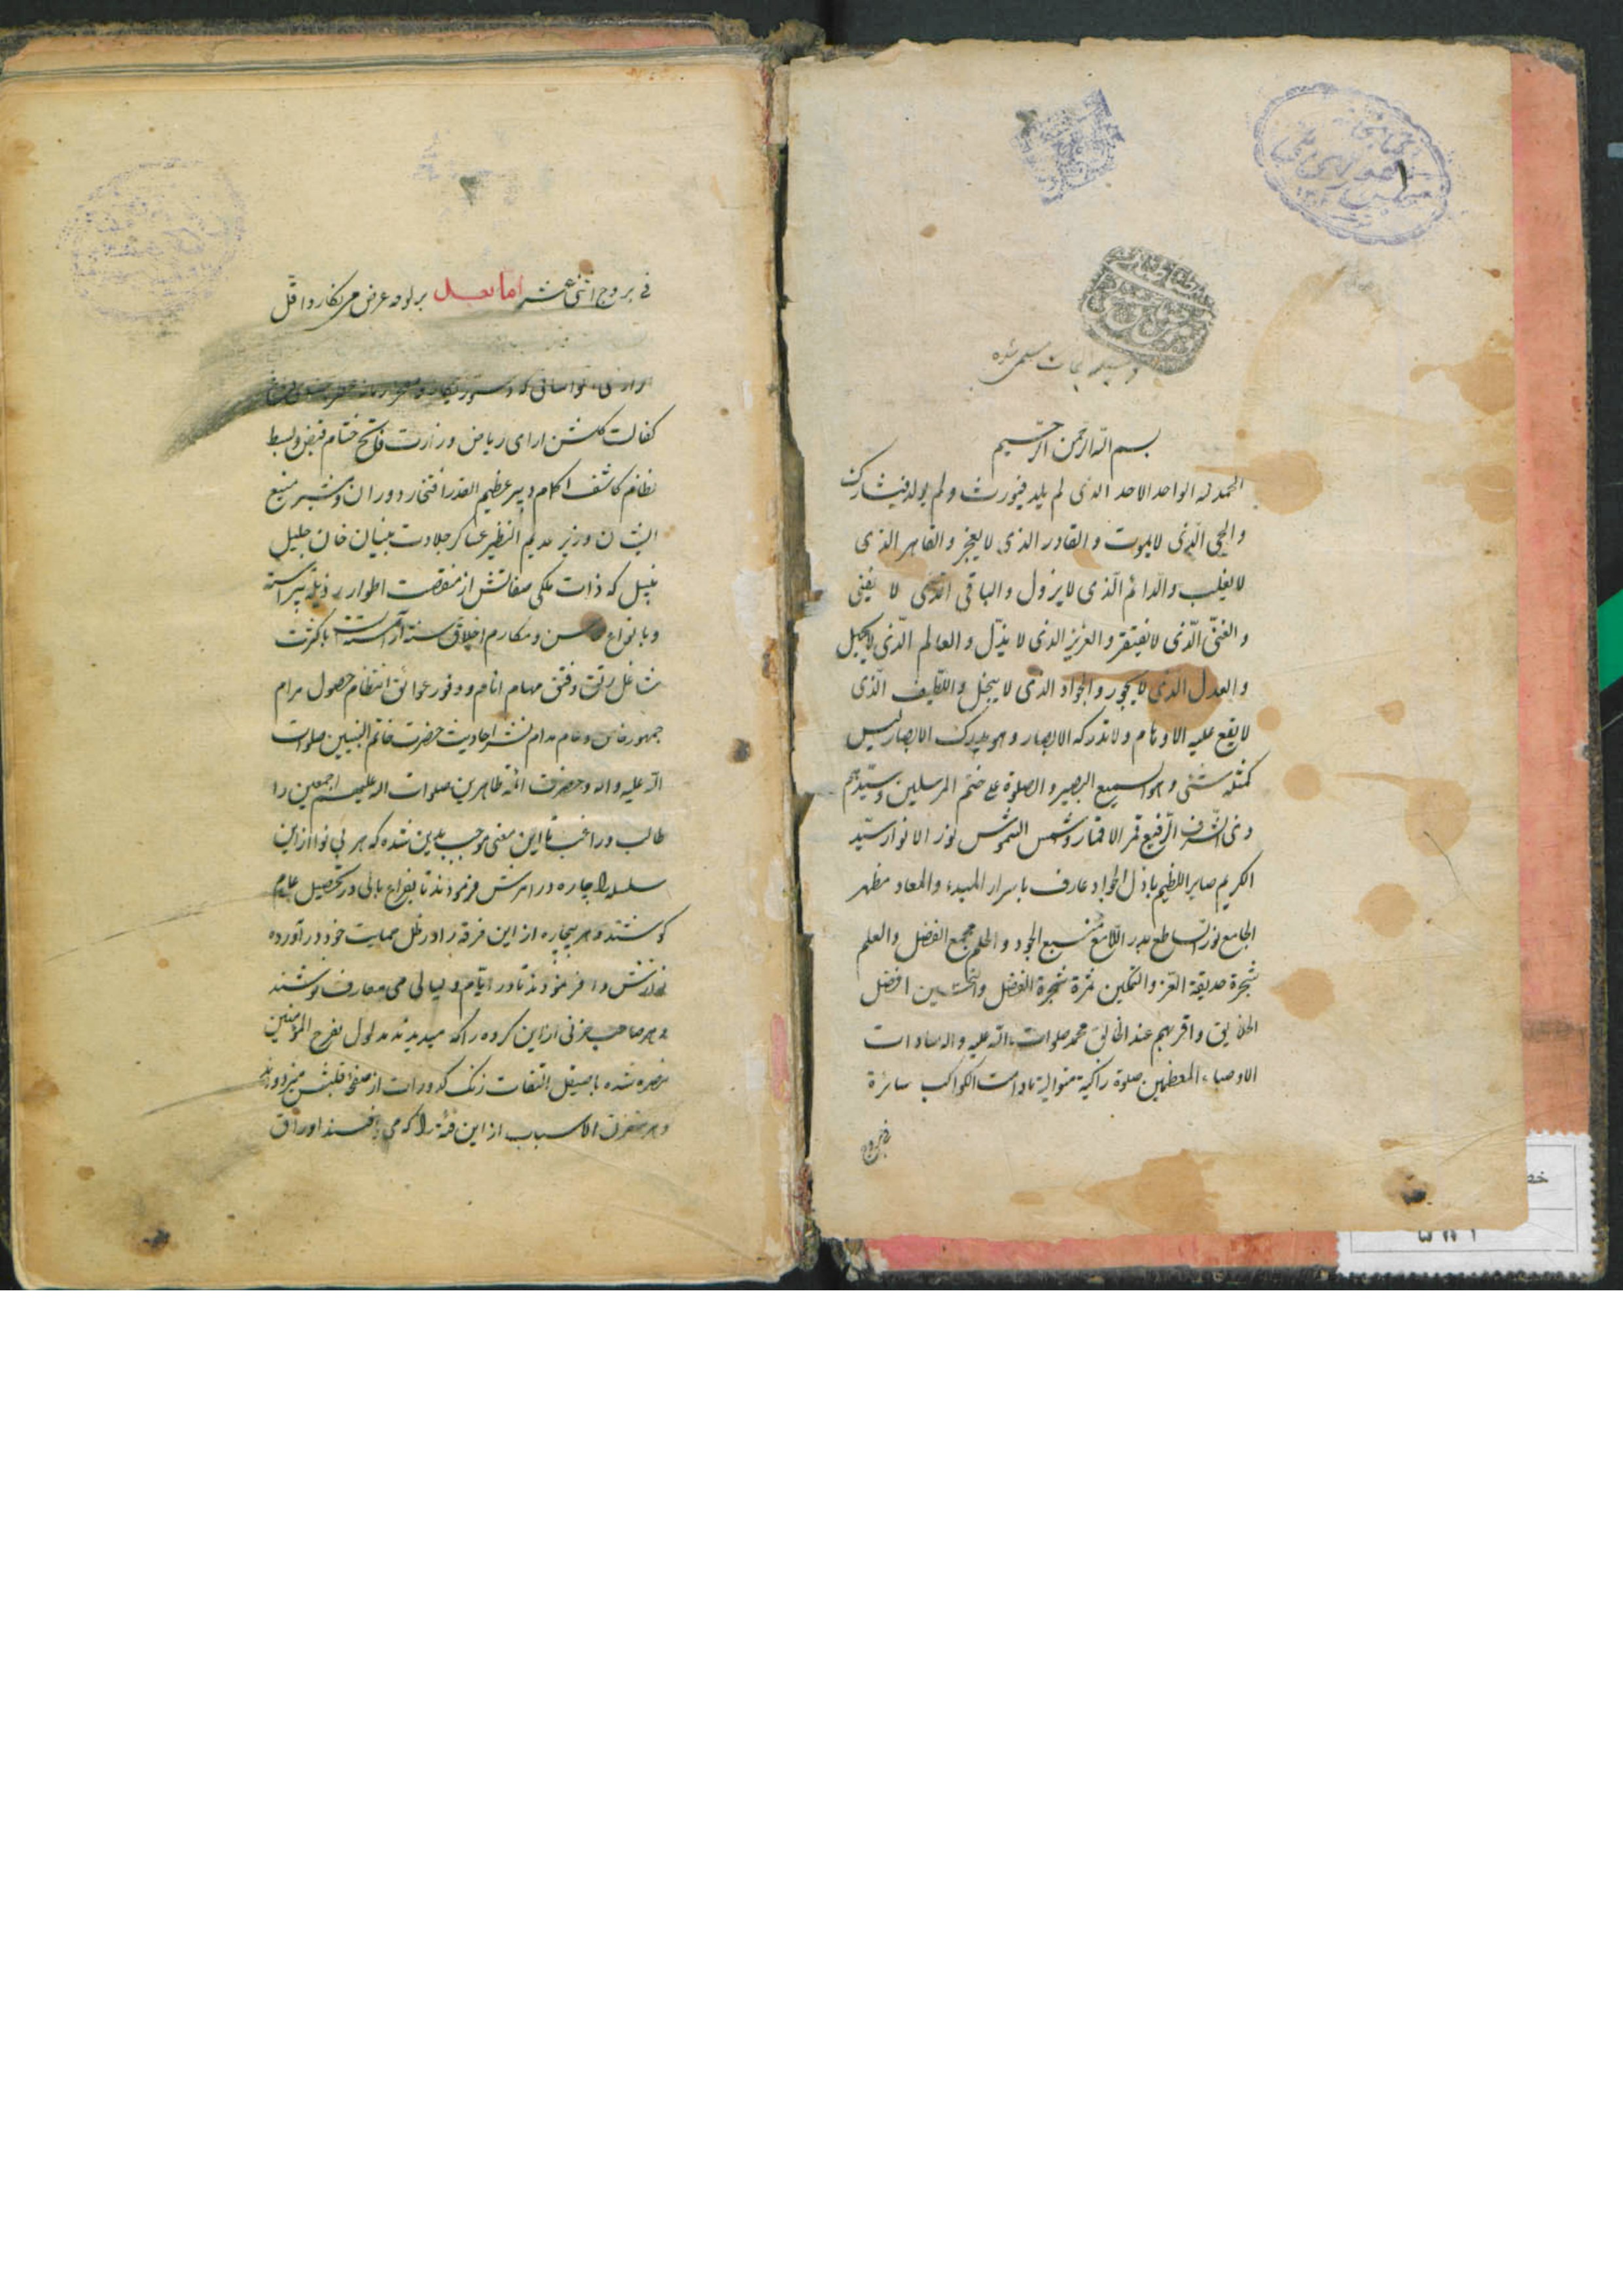 وسیله النجات مسمی شده
بسم الله الرحمن الرحیم
الحمد لله الواحد الاحد الذی لم یلد فیورث و لم یولد فیشارک
و الحی الذی لا یموت و القادر الذی لا یعجز و القاهر الذی
لا یغلب و الدائم الذی لا یزول و الباقی الذی لا یفنی
و الغنی الذی لا یفتقر و العزیز الذی لا یذل و العالم الذی لا یجهل
و العدل الذی لا یجور و الجواد الذی لا یبخل و اللطیف الذی
لا یقع علیه الاوهام و لا تدرکه الابصار و هو یدرک الابصار لیس
کمثله شئی و هو السمیع البصیر و الصلوة علی ختم المرسلین و سیدهم
ذی الشرف الرفیع قمر الاقمار و شمس الشموس نور الانوار سید
الکریم صابر اللطیم باذل الجواد عارف باسرار المبدء و المعاد مظهر
الجامع نور الساطع بدر اللامع منبع الجود و الحلم مجمع الفضل و العلم
شجرة حدیقة العز و التمکین ثمرة شجرة الفضل و افضل
الخلایق و اقربهم عند الخالق محمد صلوات الله علیه و اله سادات
الاوصیاء المعظمین صلوة زاکیة متوالیة مادامت الکواکب سائرة
فی بروج
فی بروج اثنی عشر اما بعد بر لوحه عرض می نکارد اقل
کفالت کلشن ارای ریاض وزارت فاتح ختام قبض و بسط
نظام کاشف دبیر عظیم القدر افتخار دوران و مشیر منیع
الشان وزیر عدیم النظیر عساکر جلادت بنیان خان جلیل
نبیل که ذات ملکی صفاتش از منقصت اطوار رذیله پیراسته
و بانواع محاسن و مکارم اخلاق حسنه آراسته است با کثرت
مشاغل رتق و فتق مهام انام و وفور عوائق انتظام حصول مرام
جمهور خاص و عام مدام نشر احادیث حضرت خاتم النبیین صلوات
الله علیه و اله و حضرات ائمه طاهرین صلوات الله علیهم اجمعین را
طالب و راغب تا این معنی موجب بدین شده که هر بی نوا از این
سلسله را چاره در امرش فرمودند تا بفراغ بالی در تحصیل علوم
کوشند و هر بیچاره از این فرقه را در ظل حمایت خود در آورده
نوازش وا فرمودند تا در ایام و لیالی می معارف نوشند
و هر صاحب حزنی از این کروه را که میدیدند مدلول یفرح المؤمنین
بنصره شده با صیقل التفات زنک کدورات از صفحه قلبش میزدودند
و هر متفرق الاسباب از این فئه را که می اوراق